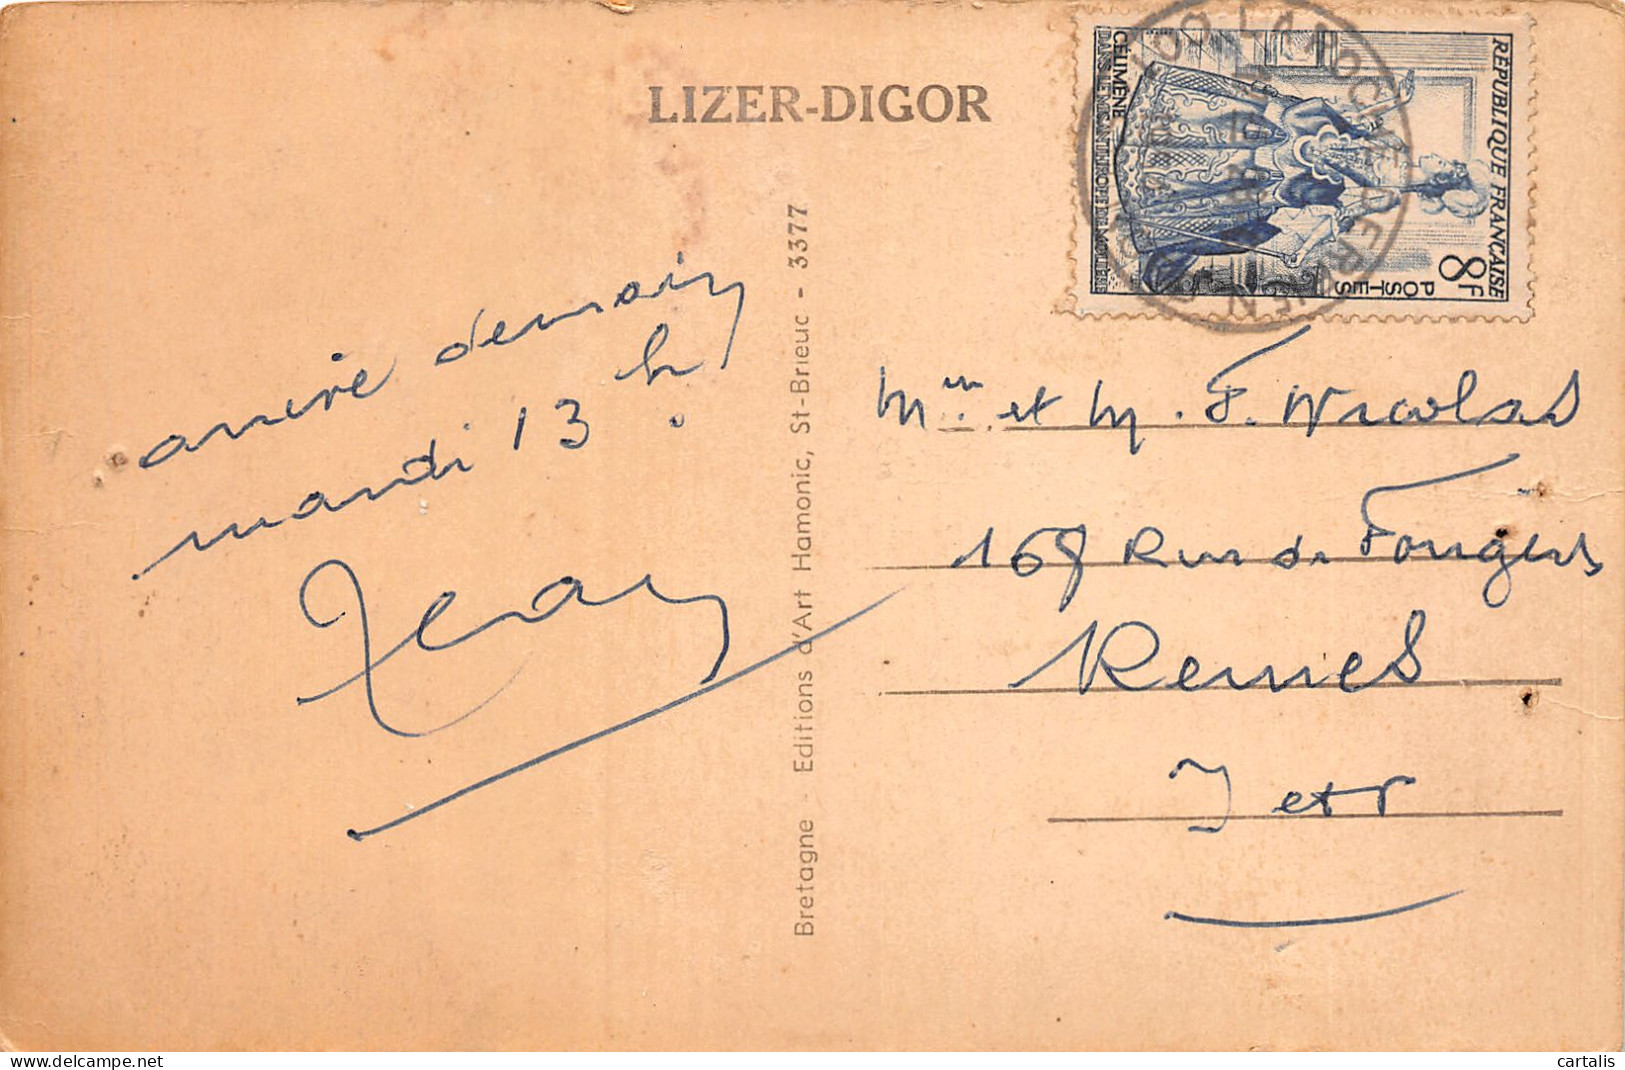 LIZER-DIGOR
RÉPUBLIQUE FRANÇAISE
8F
POSTES
CÉLIMÈNE
DANS LE MISANTHROPE DE MOLIÈRE
arrive demain
mardi 13 h.
Jean
Bretagne - Editions d'Art Hamonic, St-Brieuc - 3377
Mme et M. F. Nicolas
168 Rue de Fougères
Rennes
I et V
cartalis